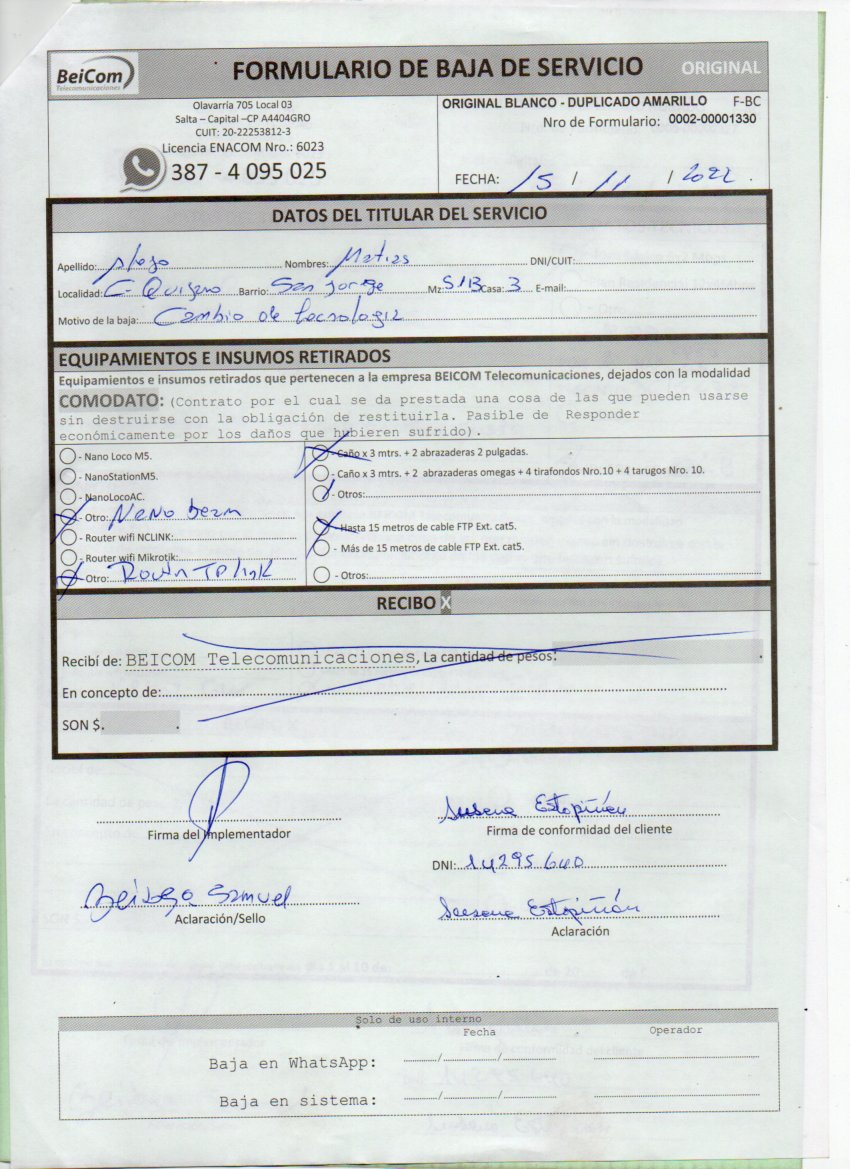 BeiCom
Telecomunicaciones
FORMULARIO DE BAJA DE SERVICIO ORIGINAL
Olavarría 705 Local 03
Salta – Capital –CP A4404GRO
CUIT: 20-22253812-3
Licencia ENACOM Nro.: 6023
387 - 4 095 025
ORIGINAL BLANCO - DUPLICADO AMARILLO F-BC
Nro de Formulario: 0002-00001330
FECHA: 15 / 11 / 2022 .
DATOS DEL TITULAR DEL SERVICIO
Apellido: Nombres: Matias DNI/CUIT:
Localidad: C. Quijano Barrio: San Jorge Mz: S/B Casa: 3 E-mail:
Motivo de la baja: Cambio de tecnologia
EQUIPAMIENTOS E INSUMOS RETIRADOS
Equipamientos e insumos retirados que pertenecen a la empresa BEICOM Telecomunicaciones, dejados con la modalidad
COMODATO: (Contrato por el cual se da prestada una cosa de las que pueden usarse
sin destruirse con la obligación de restituirla. Pasible de Responder
económicamente por los daños que hubieren sufrido).
- Nano Loco M5.
- NanoStationM5.
- NanoLocoAC.
- Otro: Nano beam
- Router wifi NCLINK:
- Router wifi Mikrotik:
- Otro: Router TP link
- Caño x 3 mtrs. + 2 abrazaderas 2 pulgadas.
- Caño x 3 mtrs. + 2 abrazaderas omegas + 4 tirafondos Nro.10 + 4 tarugos Nro. 10.
- Otros:
- Hasta 15 metros de cable FTP Ext. cat5.
- Más de 15 metros de cable FTP Ext. cat5.
- Otros:
RECIBO X
Recibí de: BEICOM Telecomunicaciones, La cantidad de pesos: .
En concepto de:
SON $. .
Firma del Implementador
Susana Estopiñán
Firma de conformidad del cliente
DNI: 14295640
Samuel
Aclaración/Sello
Susana Estopiñán
Aclaración
Solo de uso interno
Fecha Operador
Baja en WhatsApp: / /
Baja en sistema: / /